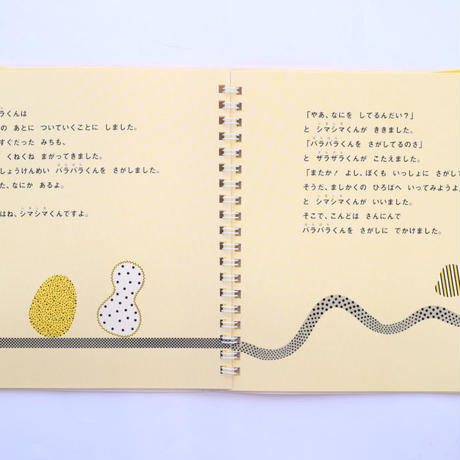 ラくんは
の あとに ついていくことに しました。
すぐだった みちも、
くねくね まがってきました。
しょうけんめい バラバラくんを さがしました。
た、なにか あるよ。
はね、シマシマくんですよ。
「やあ、なにを してるんだい？」
と シマシマくんが ききました。
「バラバラくんを さがしてるのさ」
と ザラザラくんが こたえました。
「またか！ よし、ぼくも いっしょに さがして
そうだ、ましかくの ひろばへ いってみようよ
と シマシマくんが いいました。
そこで、こんどは さんにんで
バラバラくんを さがしに でかけました。